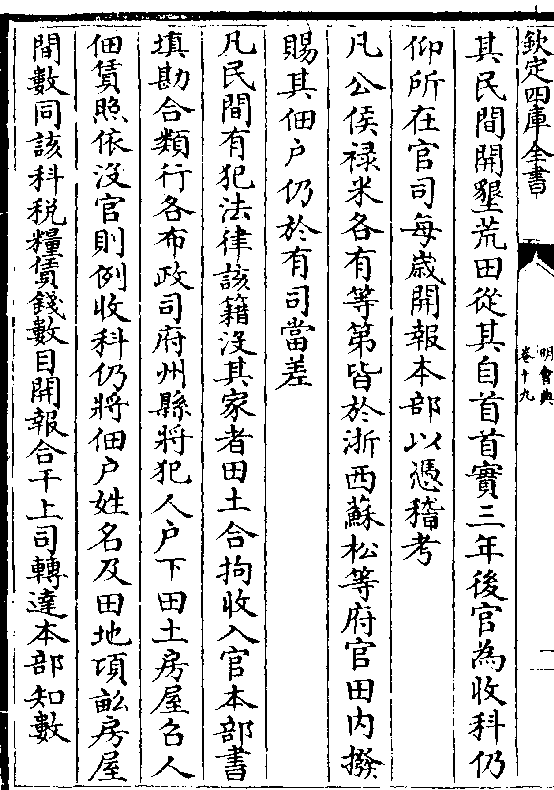 欽定四庫全書
明會典
卷十九
其民間開墾荒田從其自首首實三年後官為收科仍
仰所在官司每歲開報本部以憑稽考
凡公侯祿米各有等第皆於浙西蘇松等府官田内撥
賜其佃户仍於有司當差
凡民間有犯法律該籍没其家者田土合拘收入官本部書
填勘合類行各布政司府州縣將犯人户下田土房屋召人
佃賃照依没官則例收科仍將佃户姓名及田地項畝房屋
間數同該科税糧賃錢數目開報合干上司轉達本部知數